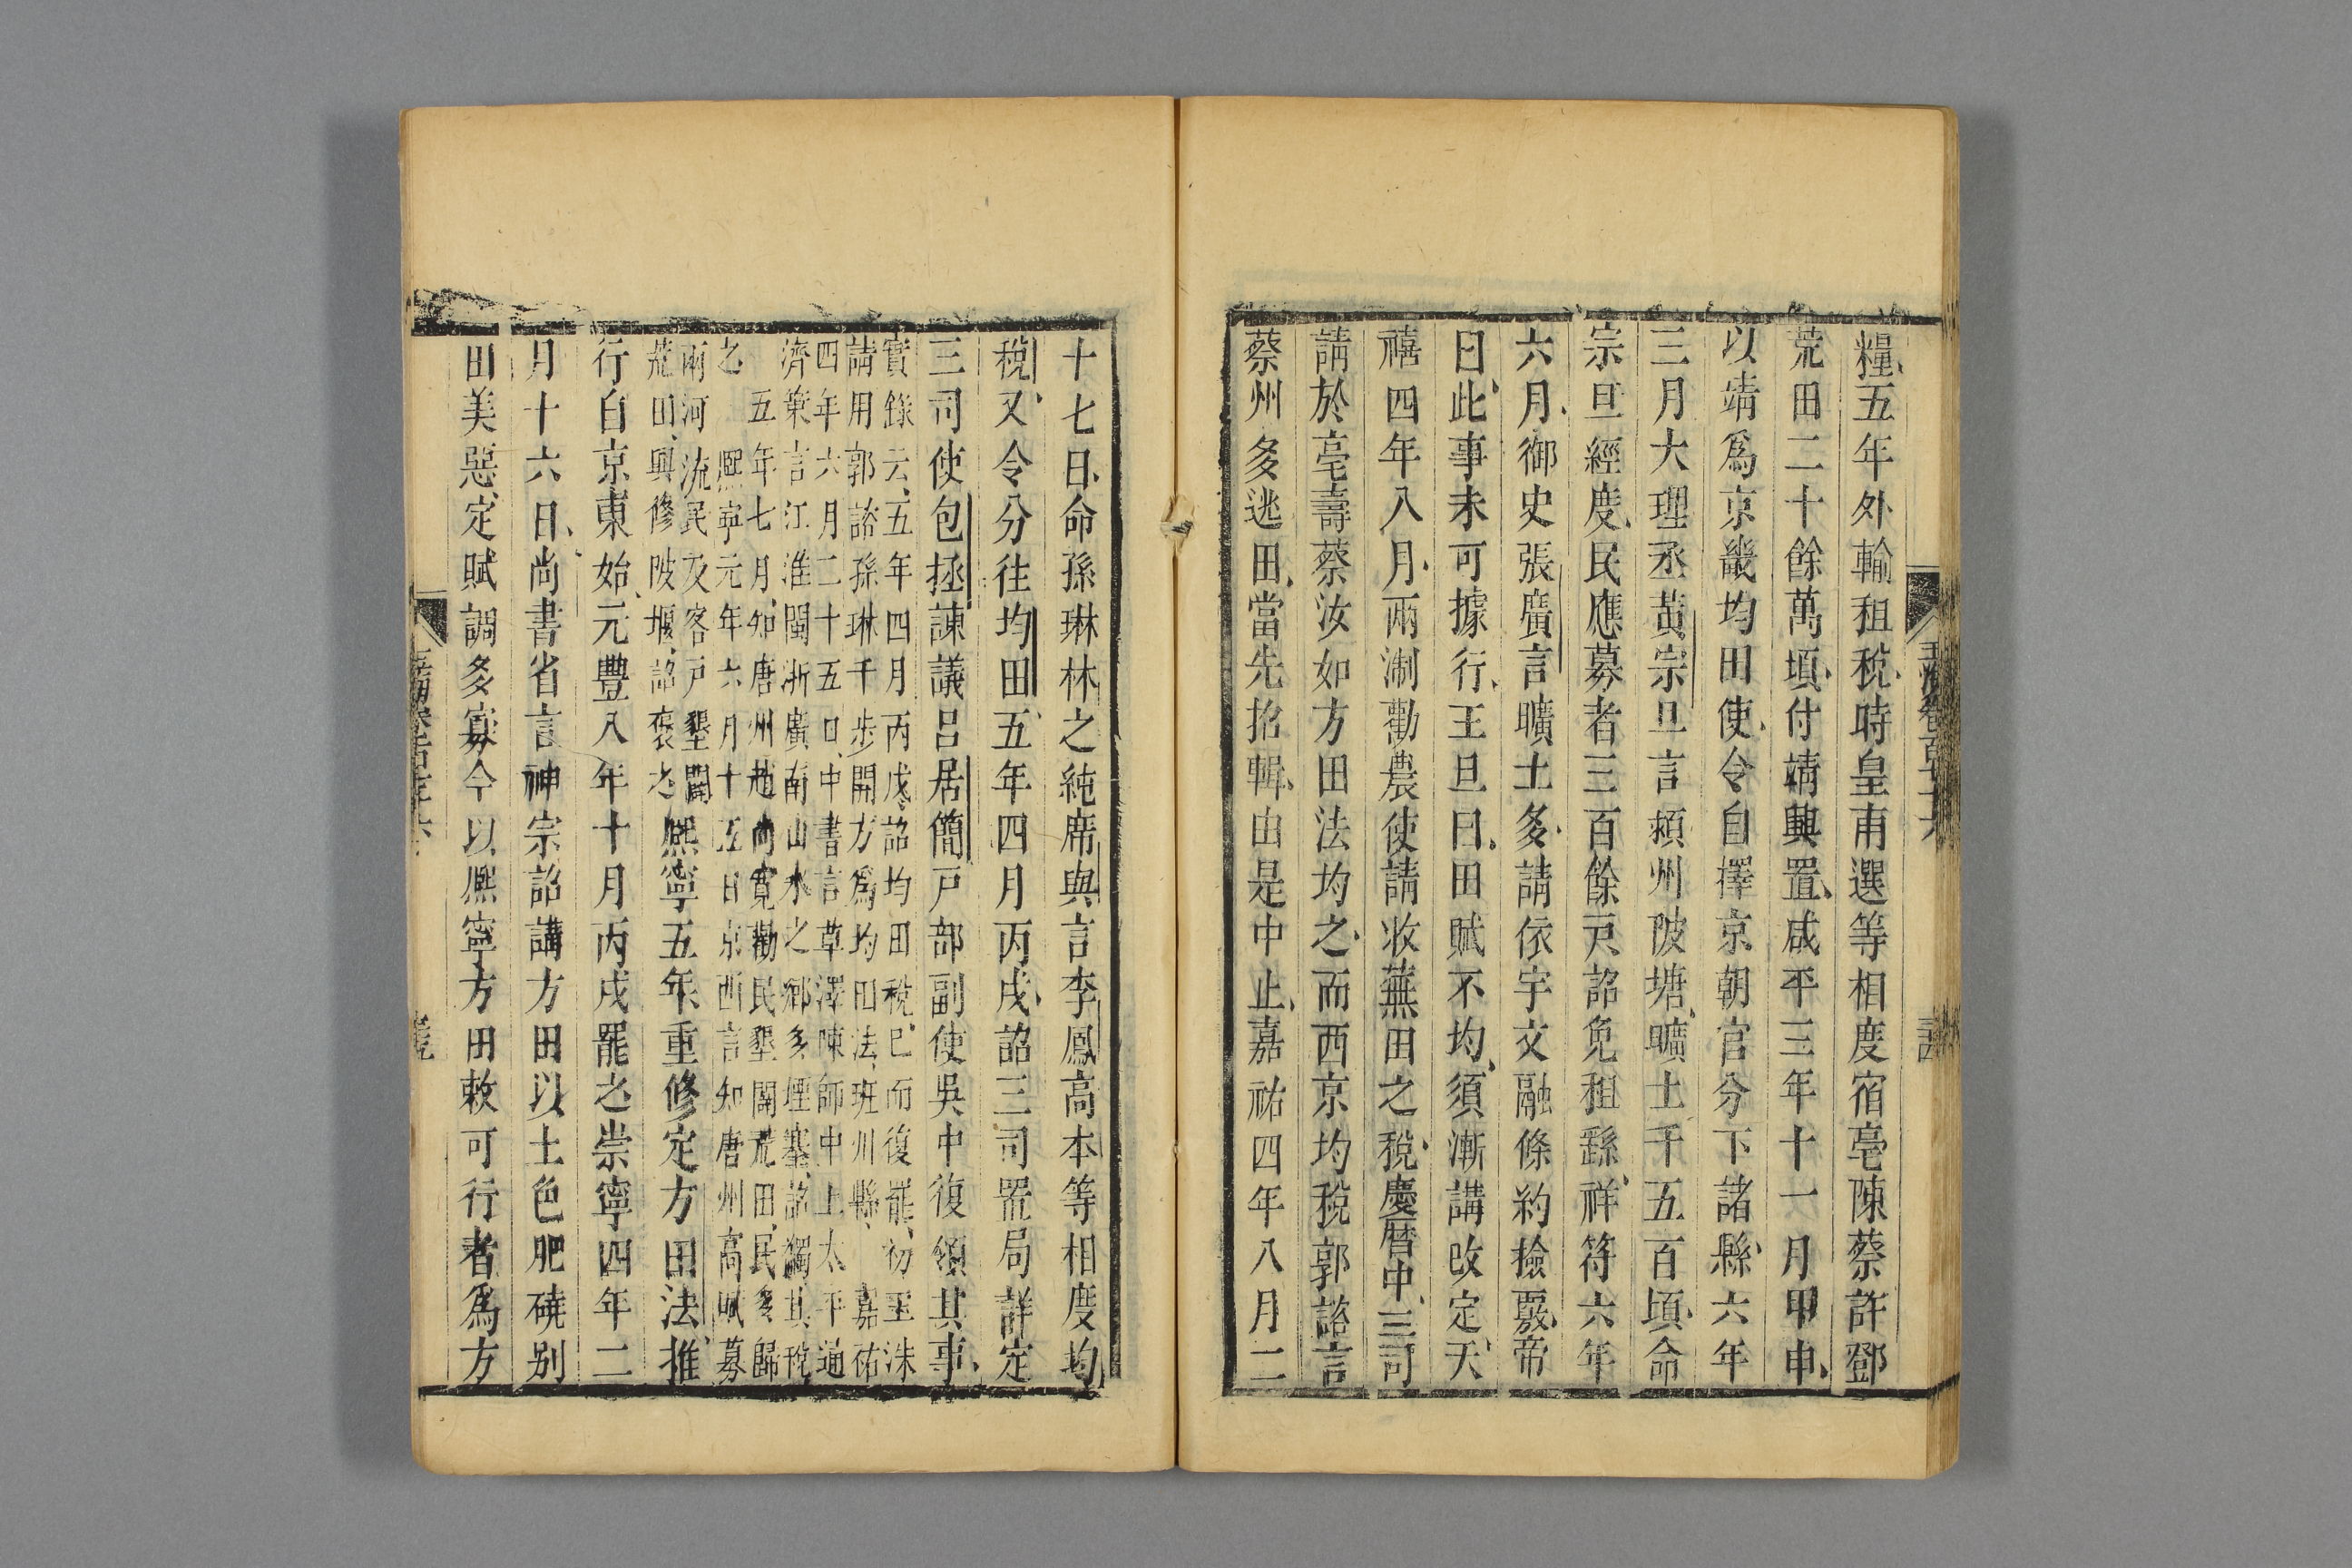 糧五年外輸租税時皇甫選等相度宿亳陳蔡許鄧
荒田二十餘萬頃付靖興置咸平三年十一月甲申
以靖爲京畿均田使令自擇京朝官分下諸縣六年
三月大理丞黃宗旦言潁州陂塘曠土千五百頃命
宗旦經度民應募者三百餘戸詔免租繇祥符六年
六月御史張廣言曠土多請依宇文融條約撿覈帝
曰此事未可據行王旦曰田賦不均須漸講改定天
禧四年八月兩淛勸農使請收蕪田之稅慶曆中三司
請於亳壽蔡汝如方田法均之而西京均稅郭諮言
蔡州多逃田當先招輯由是中止嘉祐四年八月二
十七日命孫琳林之純席與言李鳳高本等相度均
稅又令分往均田五年四月丙戌詔三司置局詳定
三司使包拯諫議吕居簡戸部副使吳中復領其事
實錄云五年四月丙戌詔均田稅已而復罷初王洙
請用郭諮孫琳千步開方爲均田法班州縣 嘉祐
四年六月二十五日中書言草澤陳師中上太平通
濟策言江淮閩浙廣南山水之鄉多堙塞詔蠲其稅
五年七月知唐州趙尚寬勸民墾闢荒田民多歸
之 熙寧元年六月十五日京西言知唐州高賦募
兩河流民及客戸墾闢
荒田興修陂堰詔褒之
熙寧五年重修定方田法推
行自京東始元豐八年十月丙戌罷之崇寧四年二
月十六日尚書省言神宗詔講方田以土色肥磽别
田美惡定賦調多寡今以熙寧方田敕可行者爲方